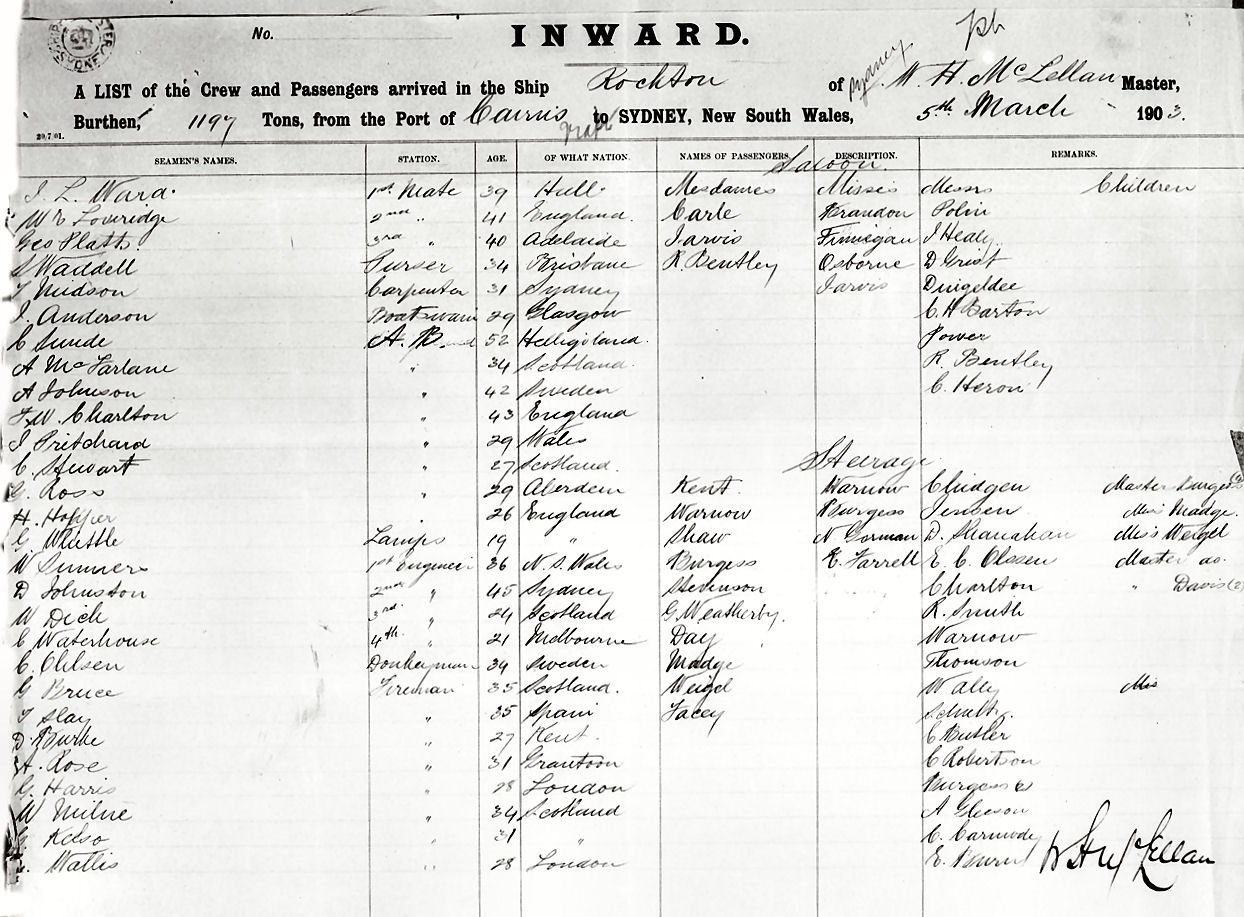 No. INWARD.
A LIST of the Crew and Passengers arrived in the Ship Rockton of Sydney W. H. McLellan Master,
Burthen, 1197 Tons, from the Port of Cairns to SYDNEY, New South Wales, 5th March 1903.
29.7.01.
SEAMEN'S NAMES. STATION. AGE. OF WHAT NATION. NAMES OF PASSENGERS. DESCRIPTION. REMARKS.
Saloon
J. L. Ward 1st Mate 39 Hull Mesdames Misses Messrs Children
Loveridge 2nd " 41 England. Carle Brandon Polin
Geo Platt 3rd " 40 Adelaide Jarvis Finnegan J Healy
S Waddell Purser 34 Brisbane R. Bentley Osborne D Grist
T Hudson Carpenter 31 Sydney Jarvis Dingeldee
J. Anderson Boatswain 29 Glasgow C. H Barton
C Sunde A. B. 52 Helligoland. Power
A McFarlane " 34 Scotland. R. Bentley
A Johnson " 42 Sweden C. Heron
F. W. Charlton " 43 England
J Pritchard " 29 Wales
C. Stewart 27 Scotland. Steerage
G. Ross " 29 Aberdeen Kent. Warnow Chidgen Master Burgess
H. Hopper 26 England Warnow Burgess Jensen Miss Madge.
G. Whittle Lamps 19 " Shaw N Gorman D. Shanahan Miss Weigel
W Sumners 1st Engineer 36 N. S. Wales Burgess E. Farrell E. C. Olssen Master do.
D Johnston 2nd " 45 Sydney Stevenson Charlton " Davis (2)
W Dick 3rd. " 24 Scotland G. Weatherby. R. Smith
C Waterhouse 4th " 21 Melbourne Day Warnow
C. Ohlsen Donkeyman 34 Sweden Madge Thomson
G Bruce Fireman 35 Scotland. Weigel Wally Mis
T Slay " 35 Spain Facey Schultz.
D. Burke " 27 Kent. C Butler
H. Rose " 31 Grantoon C Robertson
G. Harris 28 London Burgess
W Milne " 34 Scotland A Gleeson
G. Kelso " 31 " C. Carmody
Wattis " 28 London E.
W H McLellan